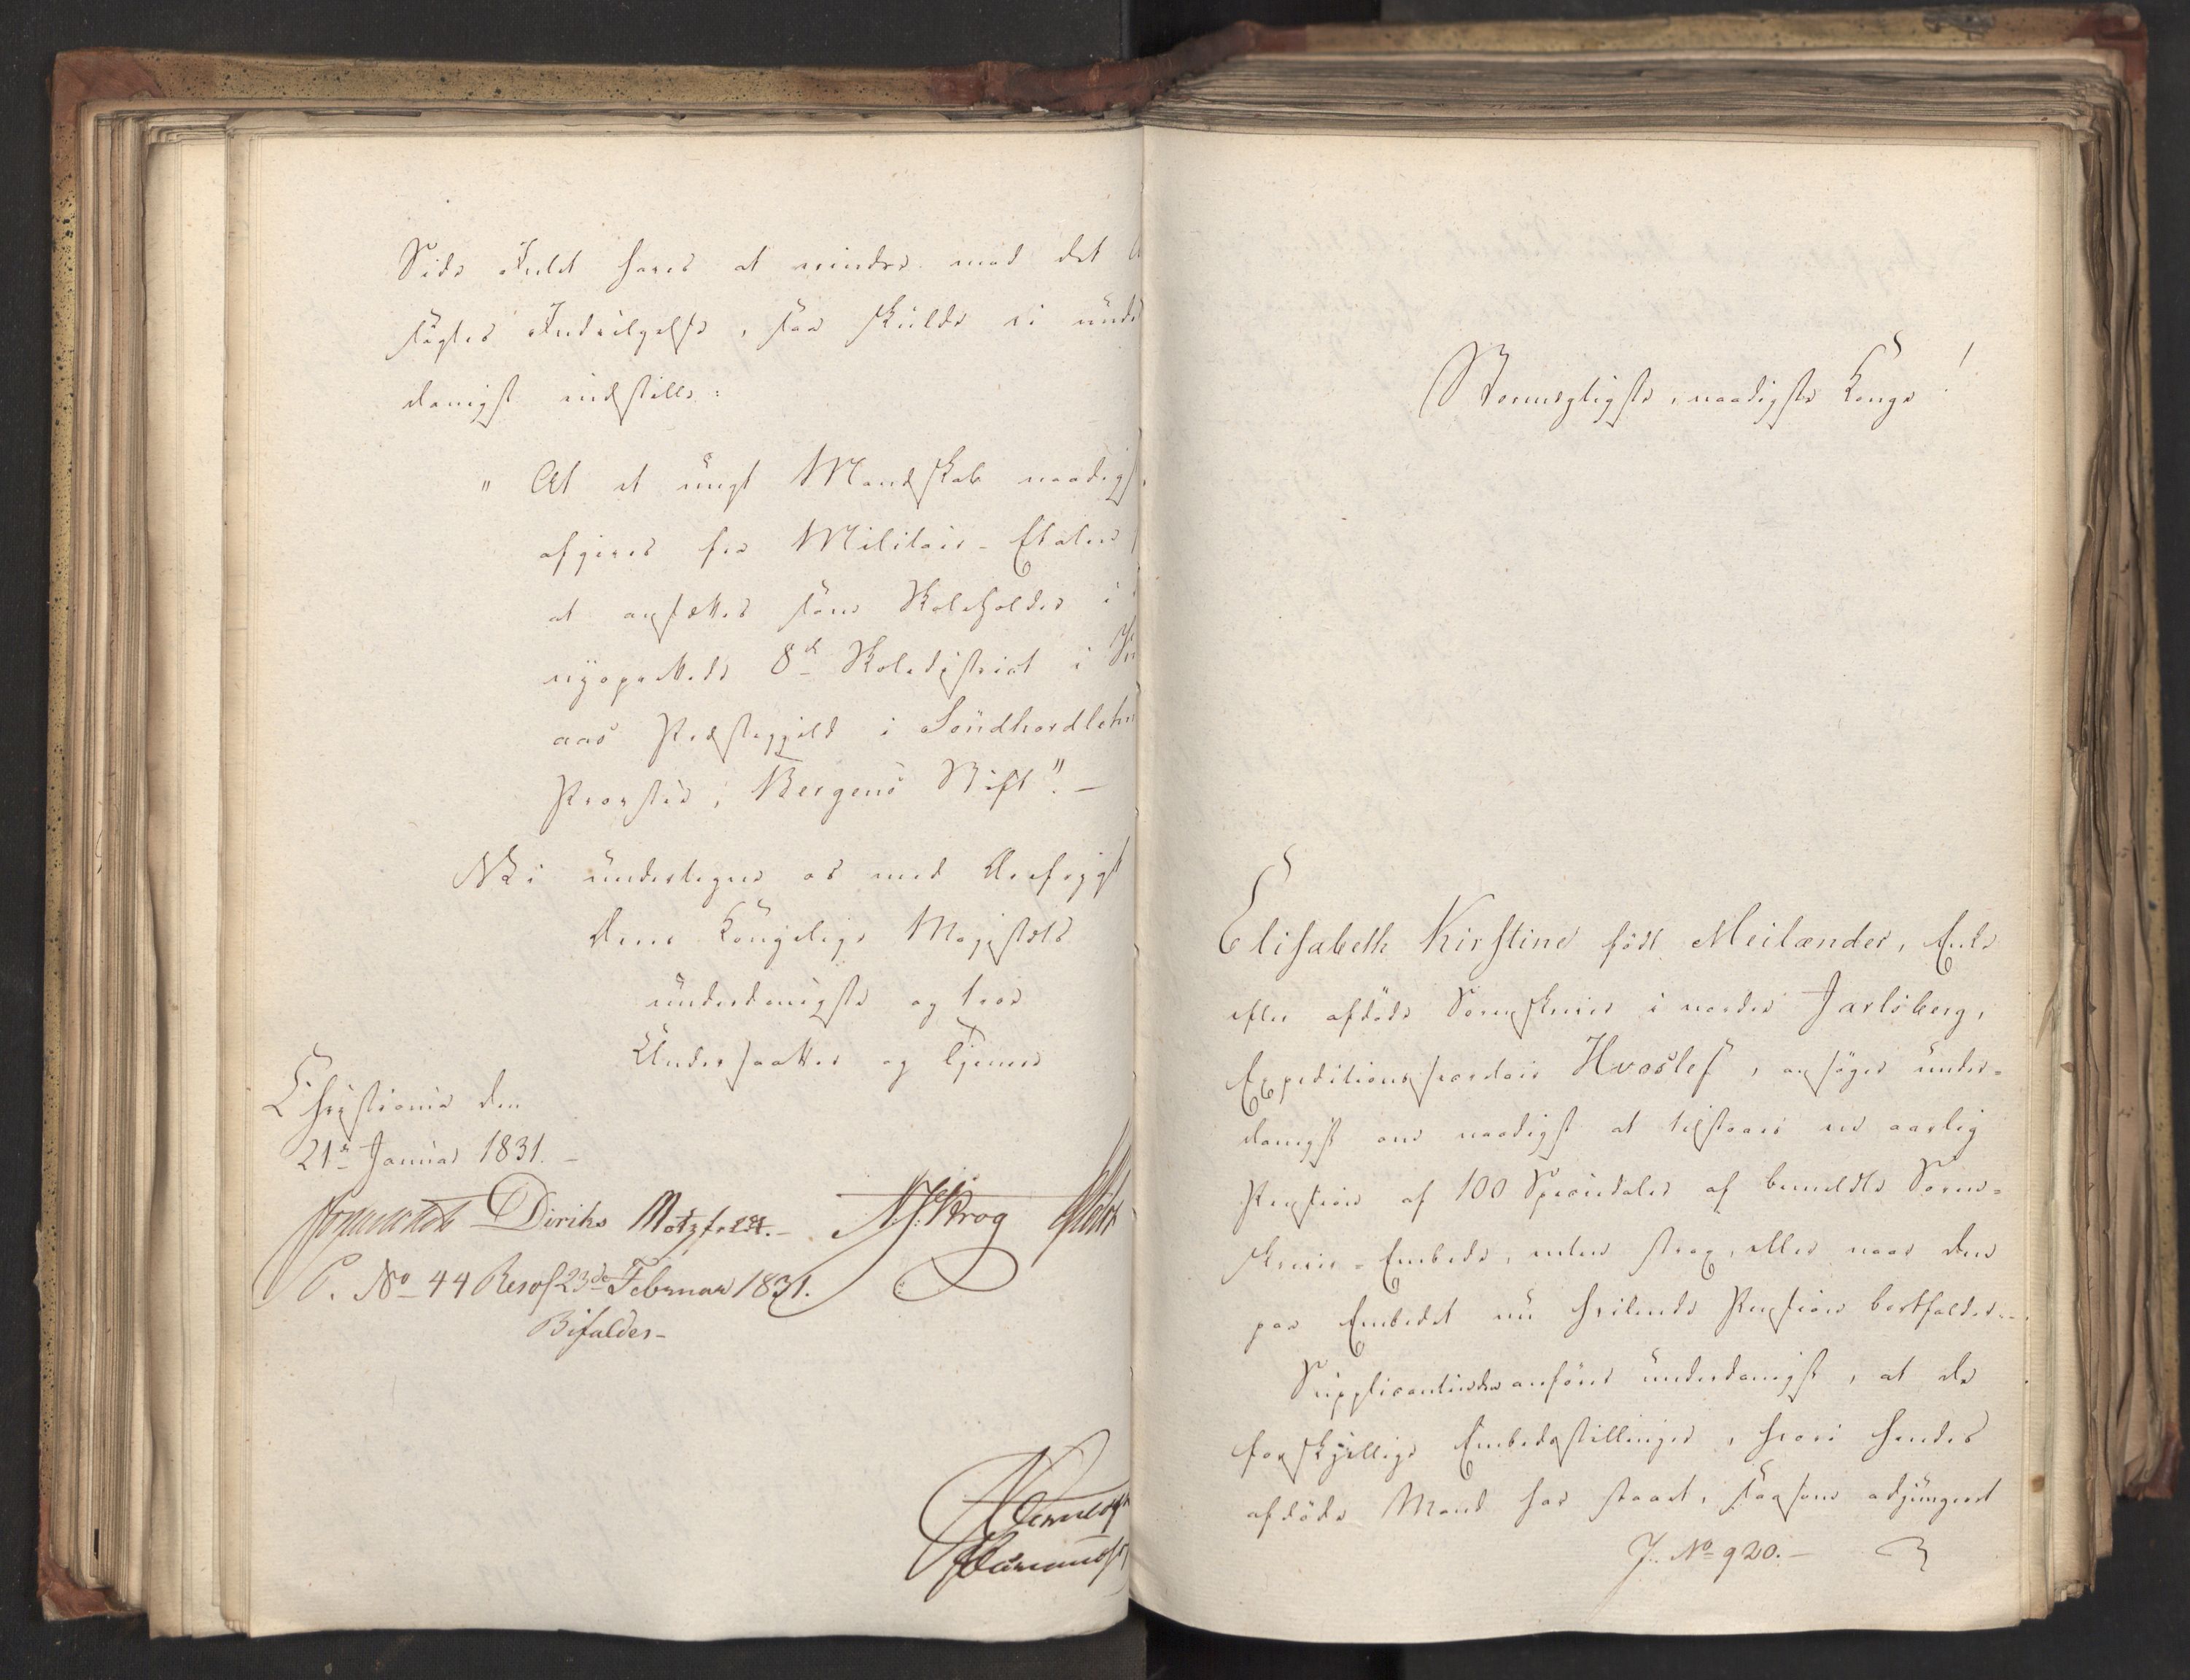 Side Intet haves at erindre mod det
søgtes Indvilgelse, saa skulde vi unde
danigst indstille:
" At et ungt Mandskab naadigs
afgives fra Militair-Etaten
at ansættes som Skoleholder i
nyoprettede 8de Skoledistrict i
aas Præstegjeld i Söndhordlehn
Provstie, Bergens Stift". -
Vi undertegne os med Ærefrygt
Deres Kongelige Majestæts
underdanigste og troe
Undersaatter og tjenere
Christiania den
21de Januar 1831. -
Diriks Motzfeldt. - N. J. Krog
P. No 44 Resol 23de Februar 1831.
Bifaldes -
Stormægtigste, naadigste Konge!
Elisabeth Kirstine født Meilænder, Enke
efter afdøde Sorenskriver i nordre Jarlsberg,
Expeditionssecretair Hvoslef, ansøger under-
danigst om naadigst at tilstaaes en aarlig
Pension af 100 Speciedaler af bemeldte Soren-
skriver-Embede, enten strax, eller naar den
paa Embedet nu hvilende Pension bortfalder. -
Supplicantinden anfører underdanigst, at de
forskjellige Embedsstillinger, hvori hendes
afdøde Mand har staaet, saasom adjungeret
J. No 920. -